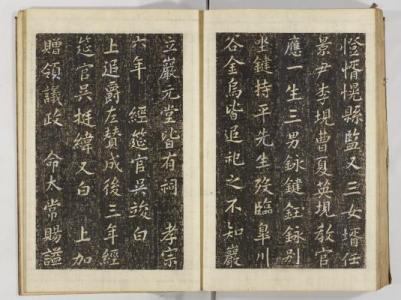 縣監又三女壻任
景尹李現曹夏英現教官
應一生三男鍵鈺別
坐鍵持平先生歿臨皐川
谷金烏皆追祀之不知巖
立巖元堂皆有祠 孝宗
六年 經筵官吳竣白
上追爵左贊成後三年經
筵官吳挺緯又白 上加
贈領議政 命太常賜謚